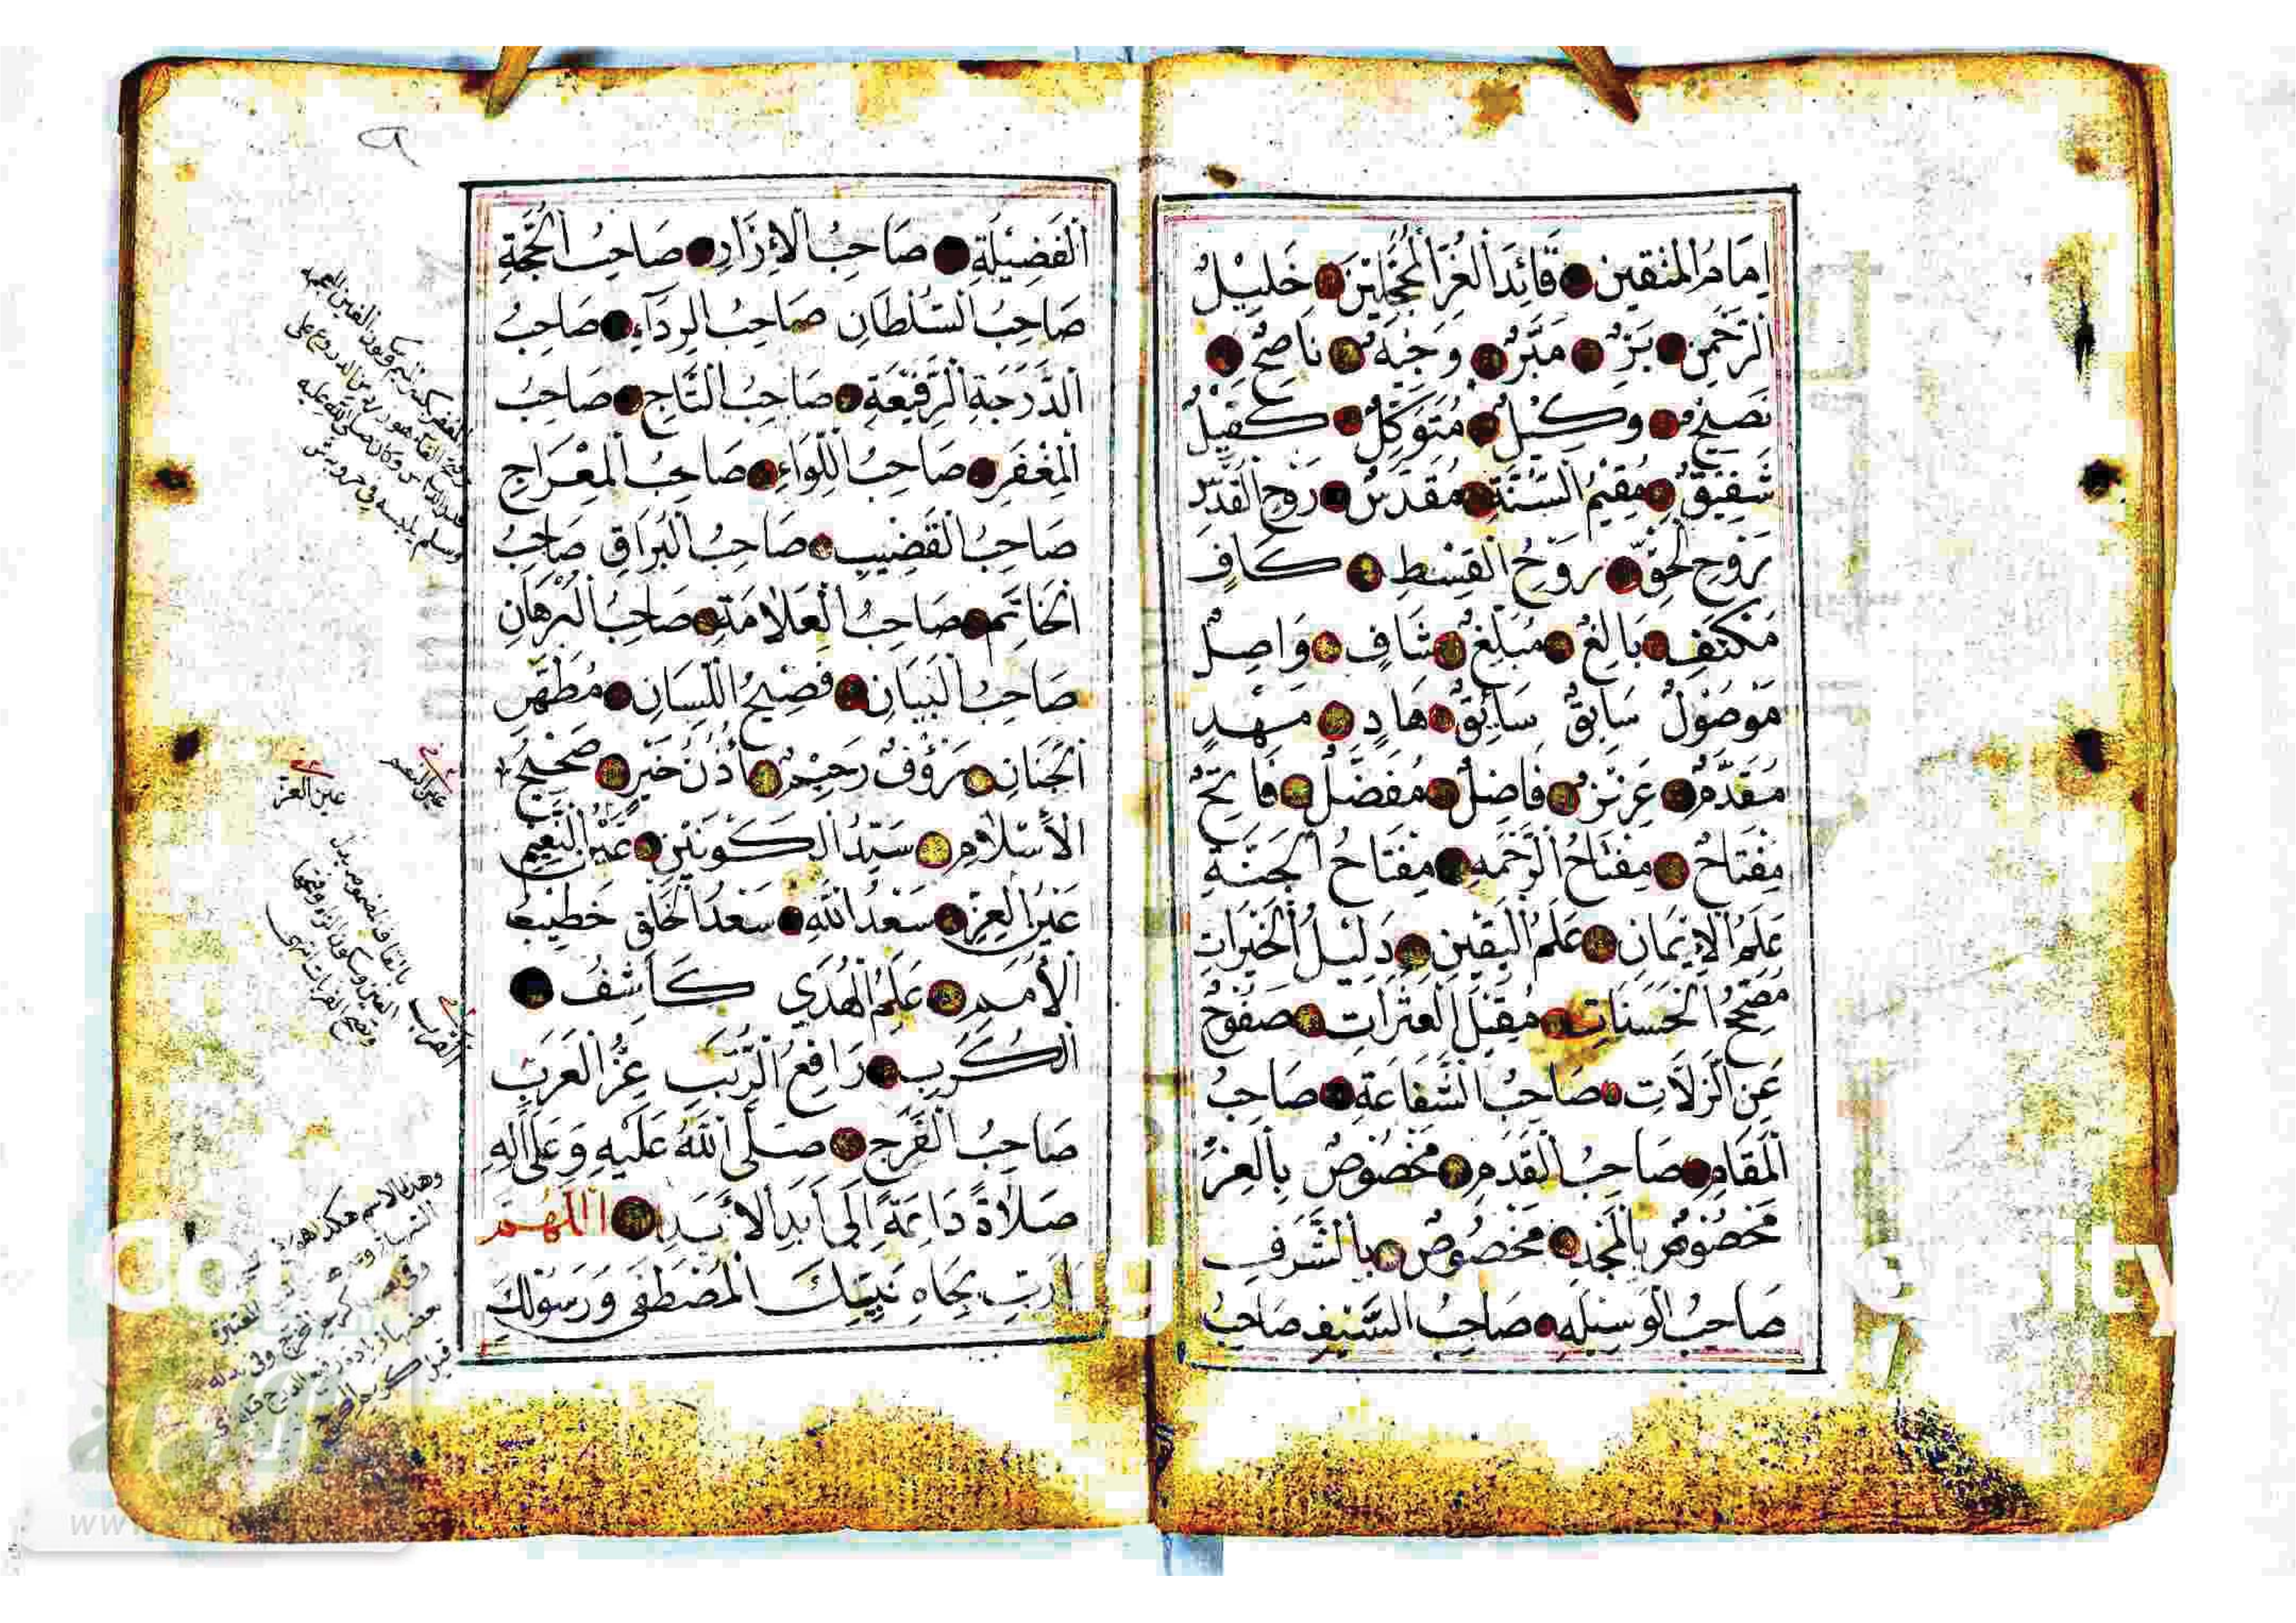 إِمَامُ الْمُتَّقِينَ قَائِدُ الْغُرِّ الْمُحَجَّلِينَ خَلِيلُ
الرَّحْمٰنِ بَرٌّ مَبَرٌّ وَجِيهٌ نَاصِحٌ
نَصِيحٌ وَكِيلٌ مُتَوَكِّلٌ كَفِيلٌ
شَفِيقٌ مُقِيمُ السُّنَّةِ مُقَدَّسٌ رُوحُ الْقُدُسِ
رُوحُ الْحَقِّ رُوحُ الْقِسْطِ كَافٍ
مُكْتَفٍ بَالِغٌ مُبَلِّغٌ شَافٍ وَاصِلٌ
مَوْصُولٌ سَابِقٌ سَائِقٌ هَادٍ مُهْدٍ
مُقَدَّمٌ عَزِيزٌ فَاضِلٌ مُفَضَّلٌ فَاتِحٌ
مِفْتَاحٌ مِفْتَاحُ الرَّحْمَةِ مِفْتَاحُ الْجَنَّةِ
عَلَمُ الْإِيمَانِ عَلَمُ الْيَقِينِ دَلِيلُ الْخَيْرَاتِ
مُصَحِّحُ الْحَسَنَاتِ مُقِيلُ الْعَثَرَاتِ صَفُوحٌ
عَنِ الزَّلَّاتِ صَاحِبُ الشَّفَاعَةِ صَاحِبُ
الْمَقَامِ صَاحِبُ الْقَدَمِ مَخْصُوصٌ بِالْعِزِّ
مَخْصُوصٌ بِالْمَجْدِ مَخْصُوصٌ بِالشَّرَفِ
صَاحِبُ الْوَسِيلَةِ صَاحِبُ السَّيْفِ صَاحِبُ
الْفَضِيلَةِ صَاحِبُ الْإِزَارِ صَاحِبُ الْحُجَّةِ
صَاحِبُ السُّلْطَانِ صَاحِبُ الرِّدَآءِ صَاحِبُ
الدَّرَجَةِ الرَّفِيعَةِ صَاحِبُ التَّاجِ صَاحِبُ
الْمِغْفَرِ صَاحِبُ اللِّوَاءِ صَاحِبُ الْمِعْرَاجِ
صَاحِبُ الْقَضِيبِ صَاحِبُ الْبُرَاقِ صَاحِبُ
الْخَاتَمِ صَاحِبُ الْعَلَامَةِ صَاحِبُ الْبُرْهَانِ
صَاحِبُ الْبَيَانِ فَصِيحُ اللِّسَانِ مُطَهَّرُ
الْجَنَانِ رَؤُوفٌ رَحِيمٌ أُذُنُ خَيْرٍ صَحِيحُ
الْأِسْلَامِ سَيِّدُ الْكَوْنَيْنِ عَيْنُ النَّعِيمِ
عَيْنُ الْعِزِّ سَعْدُ اللّٰهِ سَعْدُ الْخَلْقِ خَطِيبُ
الْأُمَمِ عَلَمُ الْهُدَى كَاشِفُ
الْكُرَبِ رَافِعُ الرُّتَبِ عِزُّ الْعَرَبِ
صَاحِبُ الْفَرَجِ صَلَّى اللّٰهُ عَلَيْهِ وَعَلَى اٰلِهِ
صَلَاةً دَائِمَةً إِلَى أَبَدِ الْأَبَدِ اَللّٰهُمَّ
يَا رَبِّ بِجَاهِ نَبِيِّكَ الْمُصْطَفَى وَرَسُولِكَ
وسلم يلبسه في حروبه
عين النعيم
عين العز
القرب
وهذا الاسم هكذا هو